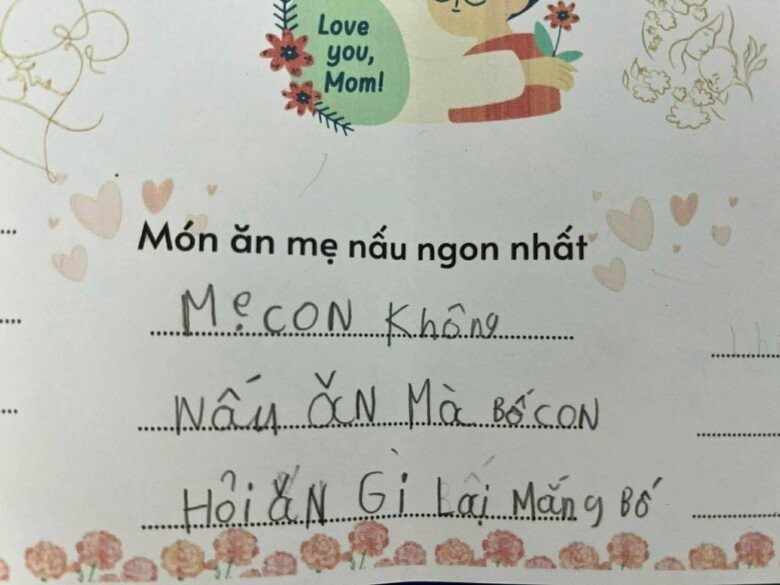 Love
you,
Mom!
Món ăn mẹ nấu ngon nhất
Mẹ CON Không
Nấu ĂN Mà Bố CON
Hỏi ĂN Gì Lại Mắng Bố